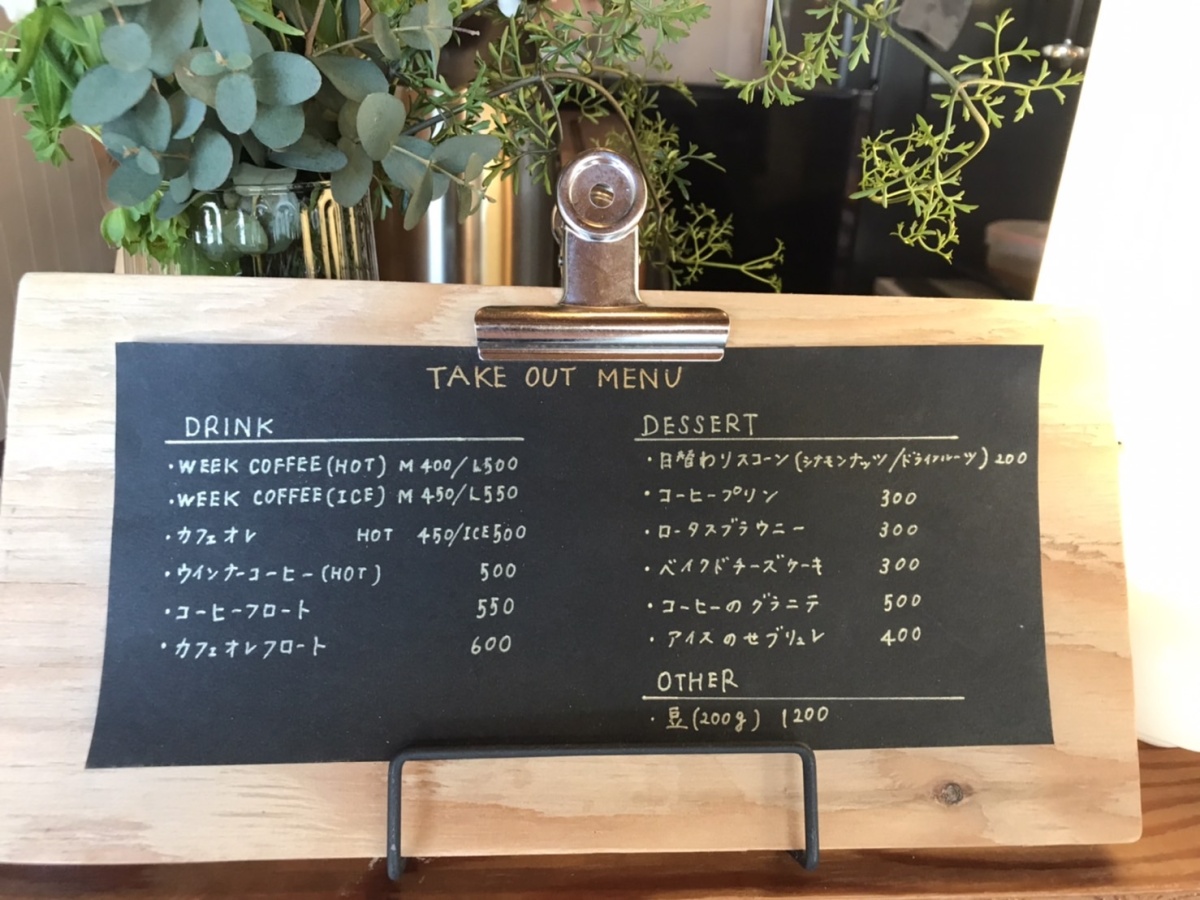 TAKE OUT MENU
DRINK
・WEEK COFFEE(HOT) M 400/L500
・WEEK COFFEE(ICE) M 450/L550
・カフェオレ HOT 450/ICE500
・ウインナーコーヒー(HOT) 500
・コーヒーフロート 550
・カフェオレフロート 600
DESSERT
・日替わりスコーン(シナモンナッツ/ドライフルーツ) 200
・コーヒープリン 300
・ロータスブラウニー 300
・ベイクドチーズケーキ 300
・コーヒーのグラニテ 500
・アイスのせブリュレ 400
OTHER
・豆(200g) 1200